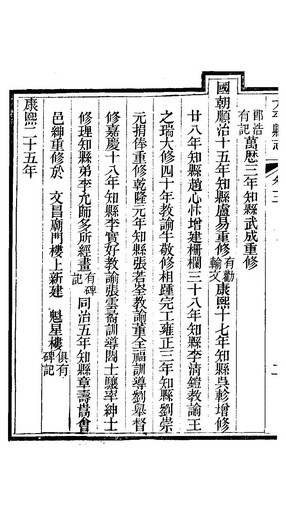 邵浩有記萬曆三年知縣武成重修
國朝順治十五年知縣盧易重修有勸輸文康熙十七年知縣吳軫增修
廿八年知縣趙心忭增建柵欄三十八年知縣李清鎧教諭王
之瑞大修四十年教諭牛敬修相踵完工雍正三年知縣劉崇
元捐俸重修乾隆元年知縣張孝峇教諭董全福訓導劉舉督
修嘉慶十八年知縣李實好教諭張雲裔訓導閻士驤率紳士
修理知縣弟李允師多所經畫有碑記同治五年知縣章壽嵩會
邑紳重修於 文昌廟門樓上新建 魁星樓俱有碑記
康熙二十五年